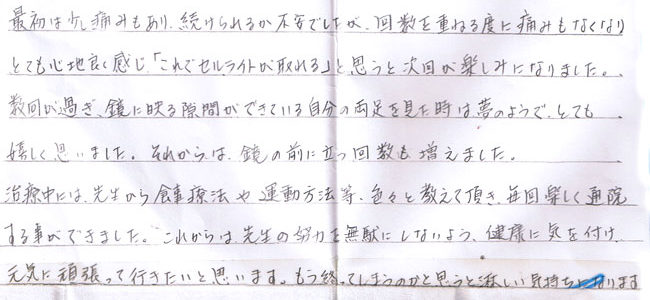 最初は少し痛みもあり、続けられるか不安でしたが、回数を重ねる度に痛みもなくなり
とても心地良く感じ、「これでセルライトが取れる」と思うと次回が楽しみになりました。
数回が過ぎ、鏡に映る隙間ができている自分の両足を見た時は夢のようで、とても
嬉しく思いました。それからは、鏡の前に立つ回数も増えました。
治療中には、先生から食事療法や運動方法等、色々と教えて頂き、毎回楽しく通院
する事ができました。これからは、先生の努力を無駄にしないよう、健康に気を付け、
元気に頑張って行きたいと思います。もう終ってしまうのかと思うと淋しい気持ちになります